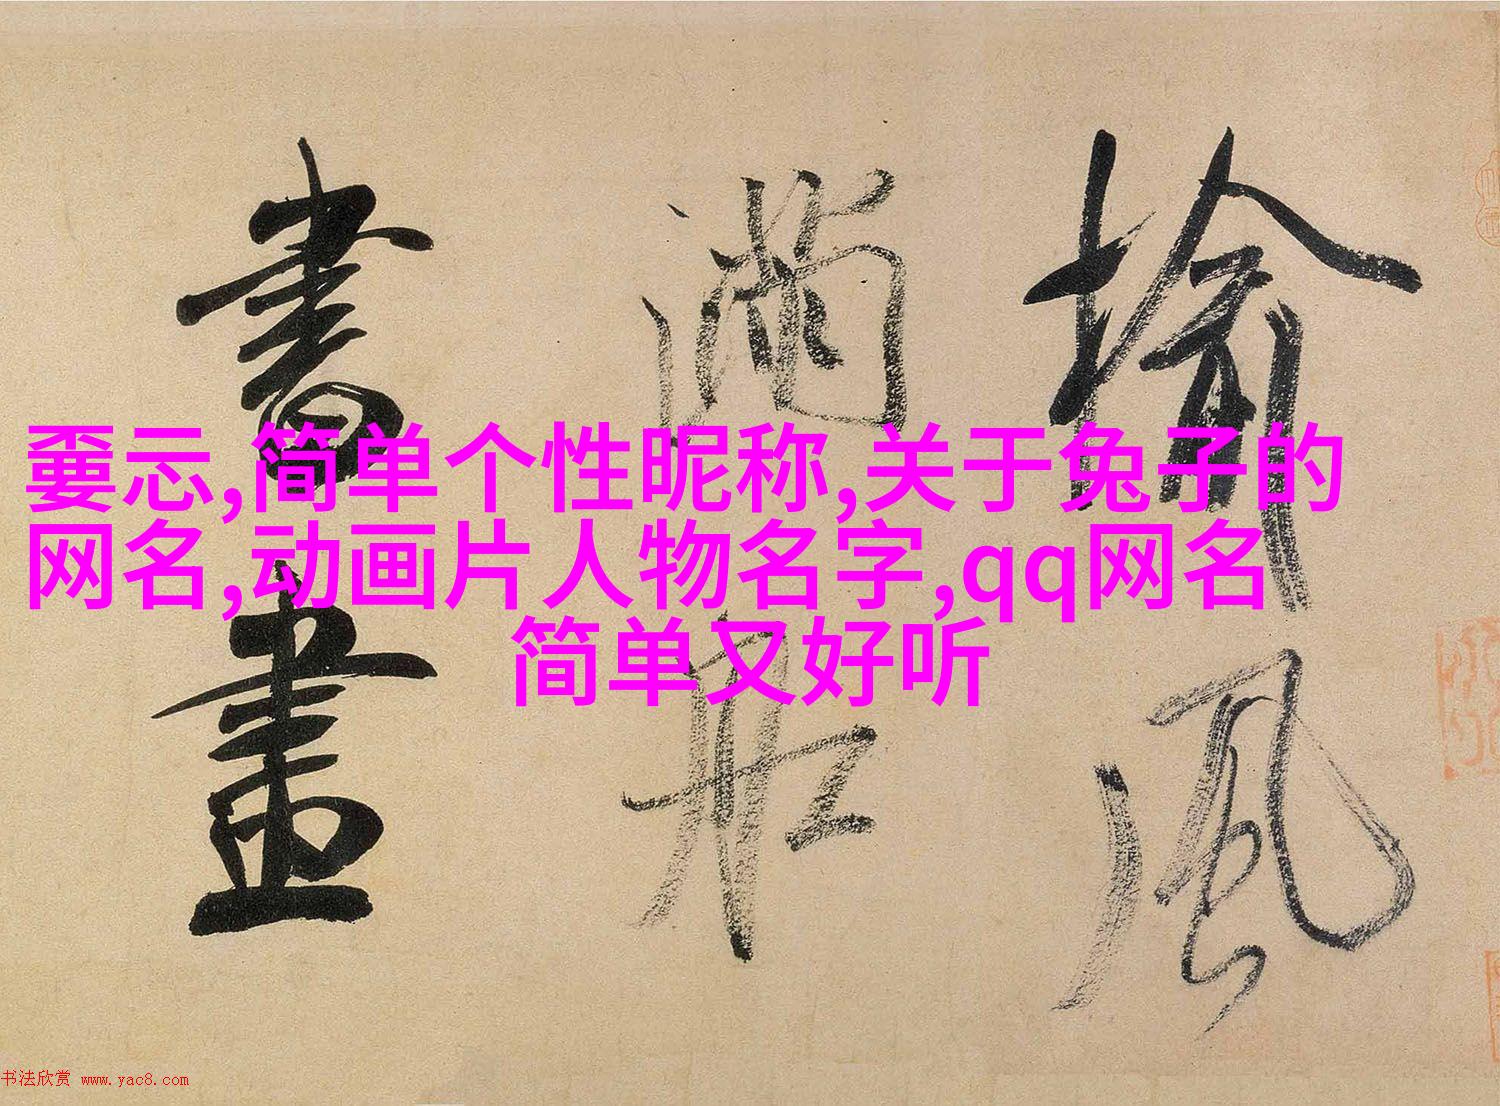 嫑忈,简单个性昵称,关于兔子的
网名,动画片人物名字,qq网名
简单又好听
榆風
滿船
書畫
书法欣赏 www.yac8.com